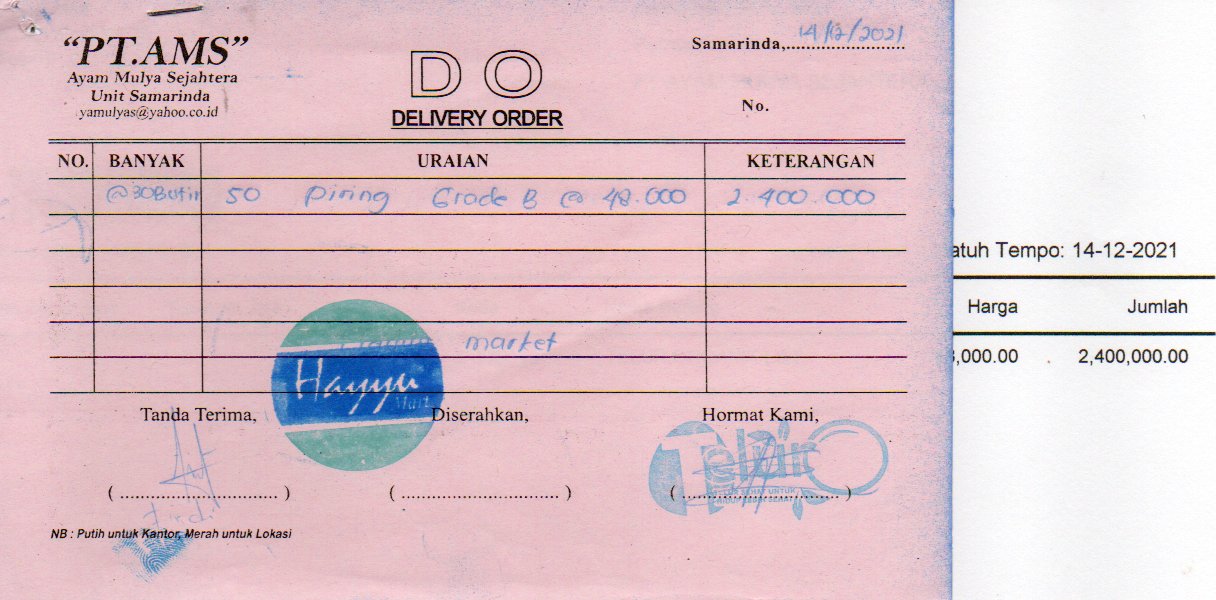 "PT.AMS"
Ayam Mulya Sejahtera
Unit Samarinda
yamulyas@yahoo.co.id
D O
DELIVERY ORDER
Samarinda, 14/12/2021
No.
NO. BANYAK URAIAN KETERANGAN
@30Butir 50 piring Grade B @ 48.000 2.400.000
market
Hayyu
Mart
Tanda Terima, Diserahkan, Hormat Kami,
Telur
(..............................) (..............................) (..............................)
NB : Putih untuk Kantor, Merah untuk Lokasi
atuh Tempo: 14-12-2021
Harga Jumlah
,000.00 2,400,000.00